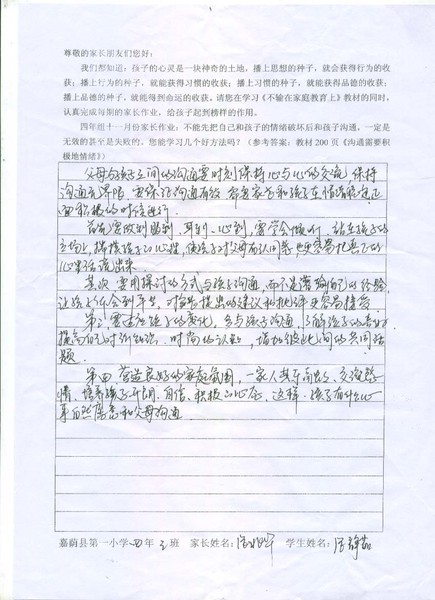 尊敬的家长朋友们您好：
我们都知道：孩子的心灵是一块神奇的土地，播上思想的种子，就会获得行为的收
获；播上行为的种子，就能获得习惯的收获；播上习惯的种子，就能获得品德的收获；
播上品德的种子，就能得到命运的收获。请您在学习《不输在家庭教育上》教材的同时，
认真完成每期的家长作业，给孩子起到榜样的作用。
四年组十一月份家长作业：不能先把自己和孩子的情绪破坏后和孩子沟通，一定是
无效的甚至是失败的。您能学习几个好方法吗？（参考答案：教材 200 页《沟通需要积
极地情绪》）
父母与孩子之间的沟通要时刻保持心与心的交流，保持
沟通无界限，要保证沟通有效，需要家长和孩子在情绪稳定正
面积极的时候进行
首先要做到眼到、耳到、心到，要学会倾听，站在孩子的
立场上，揣摸孩子的心理，使孩子对父母有认同感
心里话说出来
其次，要用探讨的方式与孩子沟通，而不是灌输自己的经验，
让孩子体会到平等，对家长提出的建议和批评更容易接受
第三，要适应孩子的变化，多与孩子沟通，了解孩子的喜好
提高自己对 时尚的认知，增加彼此间的共同话
题
第四，营造良好的家庭氛围，一家人其乐融融、交流感
情，培养孩子开朗、自信、积极的心态，这样，孩子有什么心
事自然愿意和父母沟通
嘉荫县第一小学四年三班 家长姓名： 学生姓名：